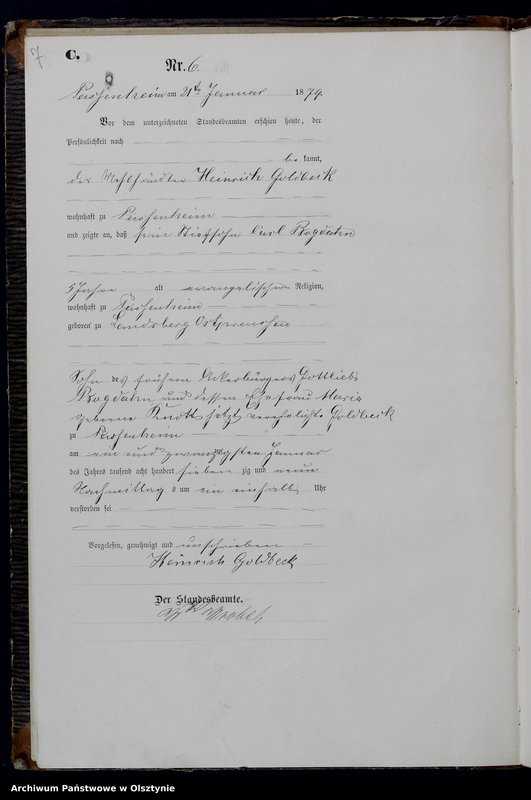 7
C.
Nr. 6.
Passenheim am 21ten Januar 1879.
Vor dem unterzeichneten Standesbeamten erschien heute, der
Persönlichkeit nach
be kannt,
der Mehlhändler Heinrich Goldbeck
wohnhaft zu Passenheim
und zeigte an, daß sein Stiefsohn Carl Rogdahn
5 Jahre alt evangelischer Religion,
wohnhaft zu Passenheim
geboren zu Landsberg Ostpreussen
Sohn des frühern Ackerbürgers Gottlieb
Rogdahn und dessen Ehefrau Maria
geborene Knott jetzt verehelichte Goldbeck
zu Passenheim
am ein und zwanzigsten Januar
des Jahres tausend acht hundert sieben zig und neun
Nachmittags um ein einhalb Uhr
verstorben sei
Vorgelesen, genehmigt und unschrieben
Heinrich Goldbeck
Der Standesbeamte.
Archiwum Państwowe w Olsztynie